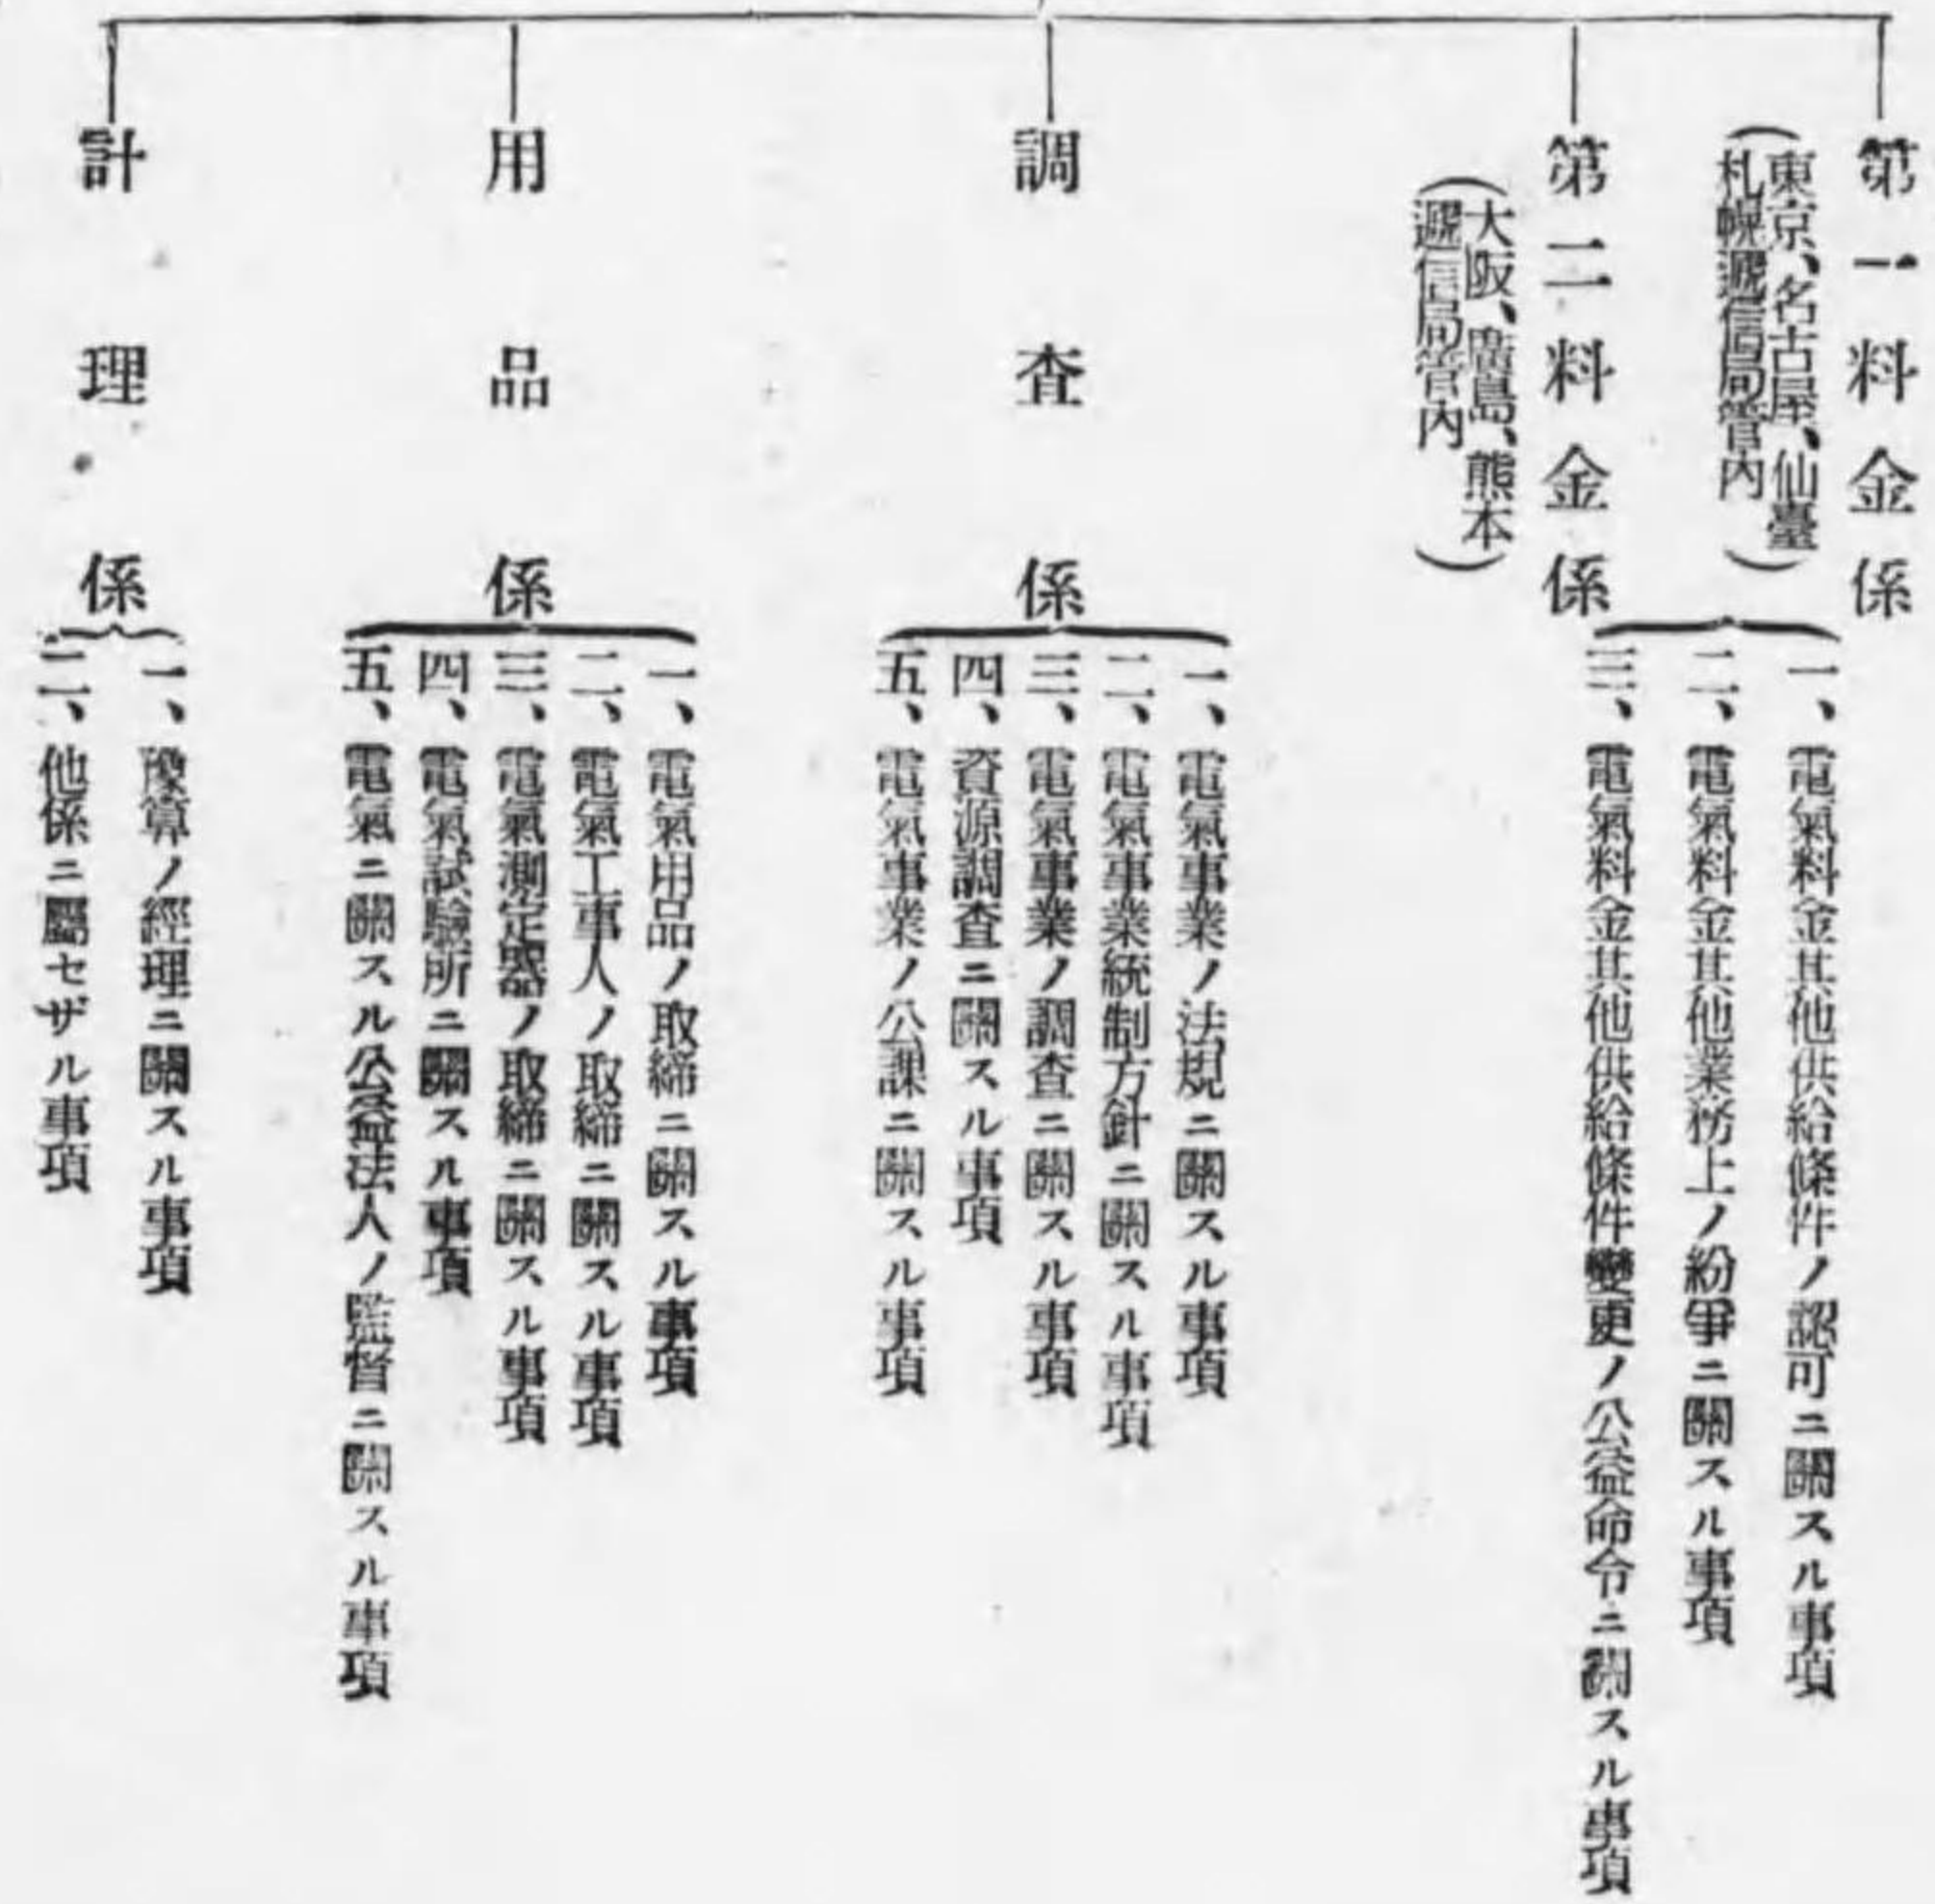 第一料金係
(東京、名古屋、仙臺
札幌遞信局管內)
第二料金係
(大阪、廣島、熊本
遞信局管內)
一、電氣料金其他供給條件ノ認可ニ關スル事項
二、電氣料金其他業務上ノ紛爭ニ關スル事項
三、電氣料金其他供給條件變更ノ公益命令ニ關スル事項
調查係
一、電氣事業ノ法規ニ關スル事項
二、電氣事業統制方針ニ關スル事項
三、電氣事業ノ調查ニ關スル事項
四、資源調查ニ關スル事項
五、電氣事業ノ公課ニ關スル事項
用品係
一、電氣用品ノ取締ニ關スル事項
二、電氣工事人ノ取締ニ關スル事項
三、電氣測定器ノ取締ニ關スル事項
四、電氣試驗所ニ關スル事項
五、電氣ニ關スル公益法人ノ監督ニ關スル事項
計理係
一、豫算ノ經理ニ關スル事項
二、他係ニ屬セザル事項